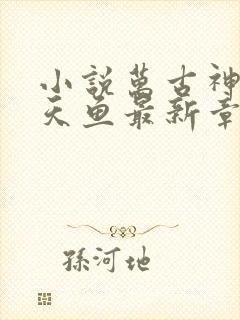 小説萬古神
天魚最新章
孫河地